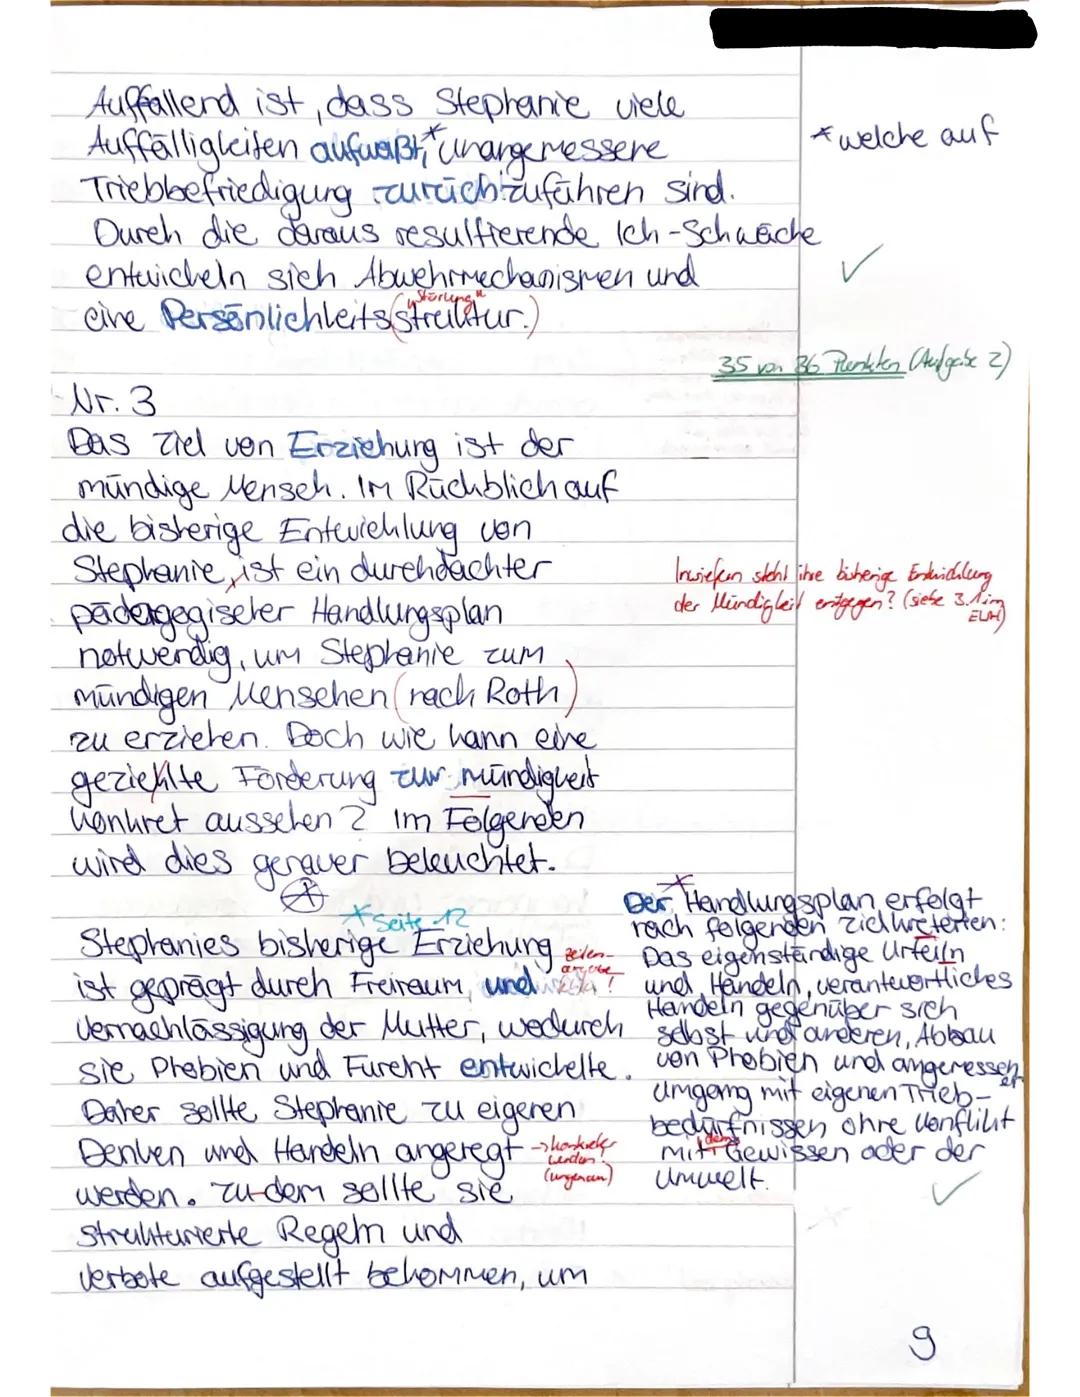 Auffallend ist, dass Stephanie viele
Auffälligkeiten aufweißt,* unangemessene
* welche auf
Triebbefriedigung zurückzuführen sind.
Durch die daraus resultierende Ich-Schwäche
entwickeln sich Abwehrmechanismen und
"Störung"
eine Persönlichkeits(struktur.)
35 von 36 Punkten (Aufgabe 2)
Nr. 3
Das Ziel von Erziehung ist der
mündige Mensch. Im Rückblick auf
die bisherige Entwicklung von
Stephanie, ist ein durchdachter
pädagogischer Handlungsplan
notwendig, um Stephanie zum
mündigen Menschen (nach Roth)
zu erziehen. Doch wie kann eine
geziehlte Förderung zur mündigkeit
konkret aussehen? Im Folgenden
wird dies genauer beleuchtet.
Inwiefern steht ihre bisherige Entwicklung
der Mündigkeit entgegen? (siehe 3.1 im
EWH)
* Seite 12
Stephanies bisherige Erziehung
ist geprägt durch Freiraum, und
Zeilen-
angabe
!
Vernachlässigung der Mutter, wodurch
sie Phobien und Furcht entwickelte.
Daher sollte Stephanie zu eigenen
Denken und Handeln angeregt
→ konkreter
werden!
(ungenau)
werden. Zu dem sollte sie
strukturierte Regeln und
Verbote aufgestellt bekommen, um
*
Der Handlungsplan erfolgt
nach folgenden Zielkreterien:
Das eigenständige Urteiln
und Handeln, verantwortliches
Handeln gegenüber sich
selbst und anderen, Abbau
von Phobien und angemessen
er
Umgang mit eigenen Trieb-
bedürfnissen ohne Konflikt
dem
mit Gewissen oder der
Umwelt.
9